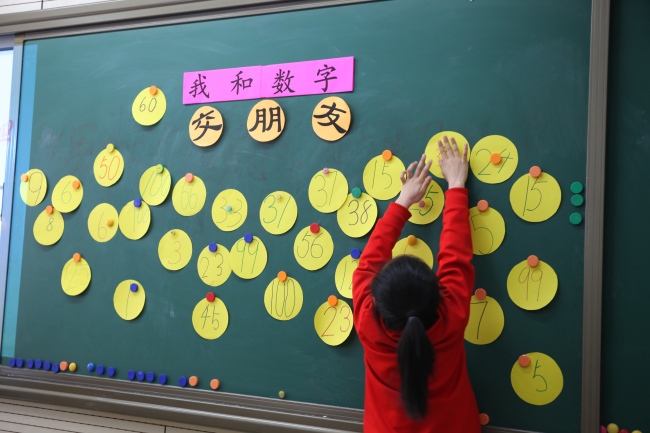 我和数字
交朋友
60
50
15
24
9
6
10
31
15
8
37
38
56
3
23
99
99
100
45
23
7
5